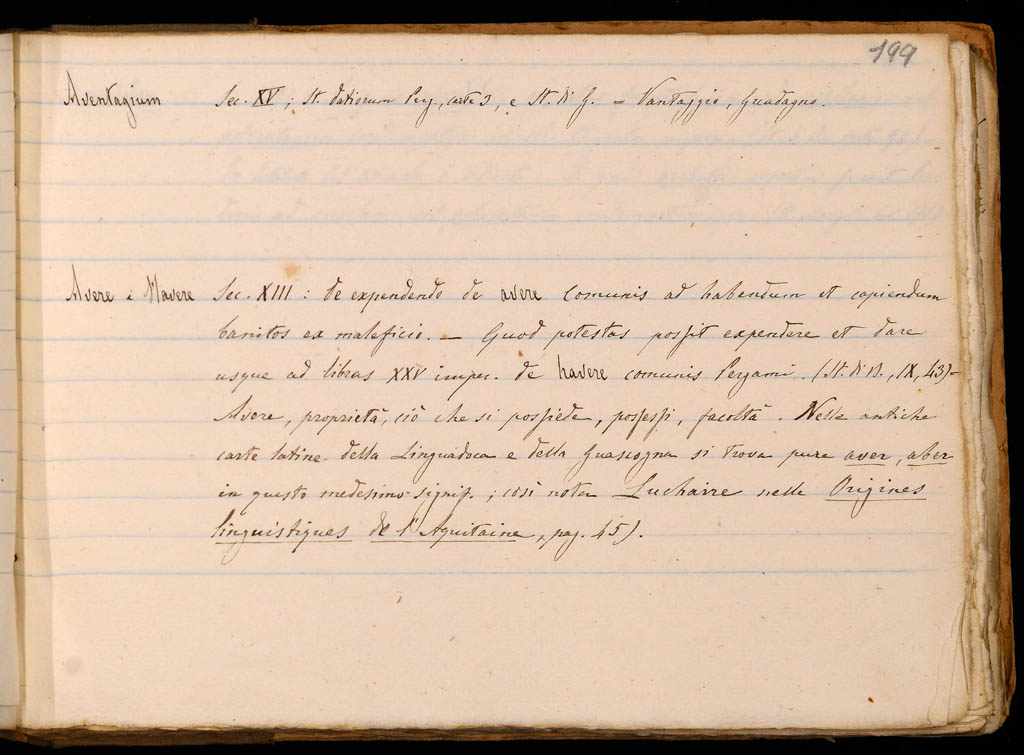 199
Aventagium Sec. XV; St. datiorum Perg., carte 3, e St. di G. = Vantaggio, Guadagno.
Avere e Havere Sec. XIII: De expendendo de avere comunis ad habendum et capiendum
banitos ex maleficio. — Quod potestas possit expendere et dare
usque ad libras XXV imper. de havere comunis Pergami. (St. di B., IX, 43) =
Avere, proprietà, ciò che si possiede, possessi, facoltà. Nelle antiche
carte latine della Linguadoca e della Guascogna si trova pure aver, aber
in questo medesimo signif.; così nota Luchaire nelle Origines
linguistiques de l'Aquitaine, pag. 45).